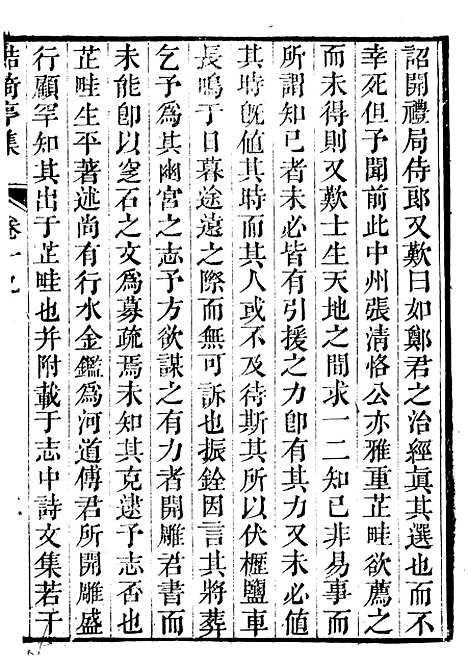 詔開禮局侍郎又歎曰如鄭君之治經眞其選也而不
幸死但予聞前此中州張清恪公亦雅重芷畦欲薦之
而未得則又歎士生天地之間求一二知己非易事而
所謂知己者未必皆有引援之力卽有其力又未必値
其時旣値其時而其人或不及待斯其所以伏櫪鹽車
長鳴于日暮途遠之際而無可訴也振銓因言其將葬
乞予爲其幽宮之志予方欲謀之有力者開雕君書而
未能卽以窆石之文爲募疏焉未知其克逮予志否也
芷畦生平著述尚有行水金鑑爲河道傅君所開雕盛
行顧罕知其出于芷畦也并附載于志中詩文集若干
鮚埼亭集
卷十九